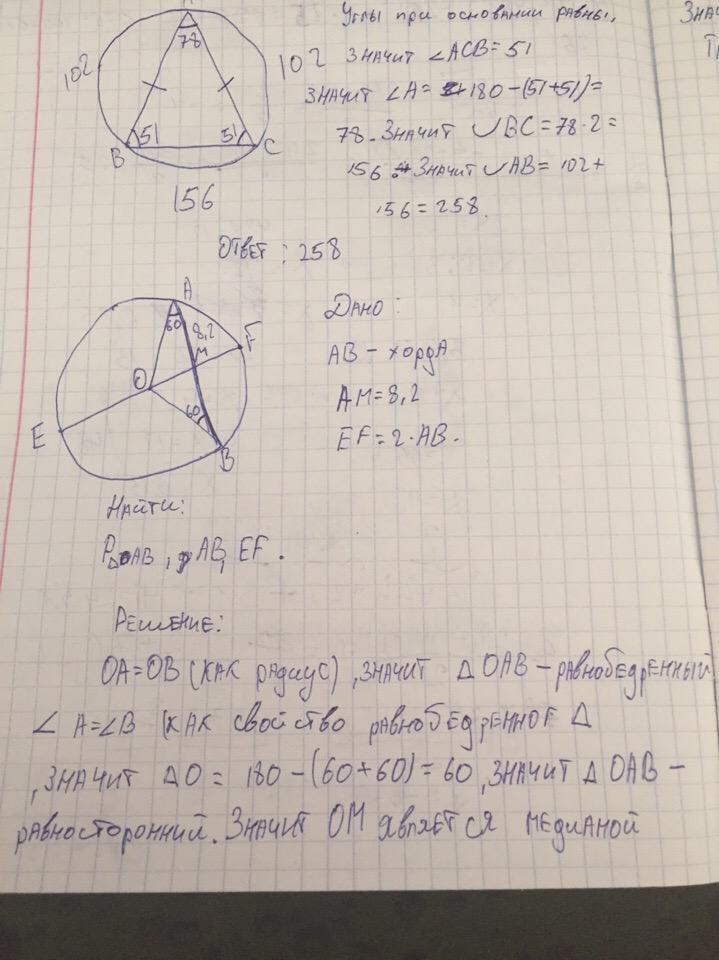 Углы при основании равны,
Знач
102
78
102
51
51
B
C
156
значит ∠ACB = 51
значит ∠A = 180 - (51+51) =
78. Значит ∪BC = 78·2 =
156. Значит ∪AB = 102+
156 = 258.
Ответ: 258
A
60
8,2
M
F
O
60
E
B
Дано:
AB - хорда
AM = 8,2
EF = 2·AB.
Найти:
P△OAB, AB, EF.
Решение:
OA=OB (как радиус), значит △OAB - равнобедренный
∠A=∠B (как свойство равнобедренное △
, значит △O = 180 - (60+60) = 60, значит △OAB -
равносторонний. Значит OM является медианой